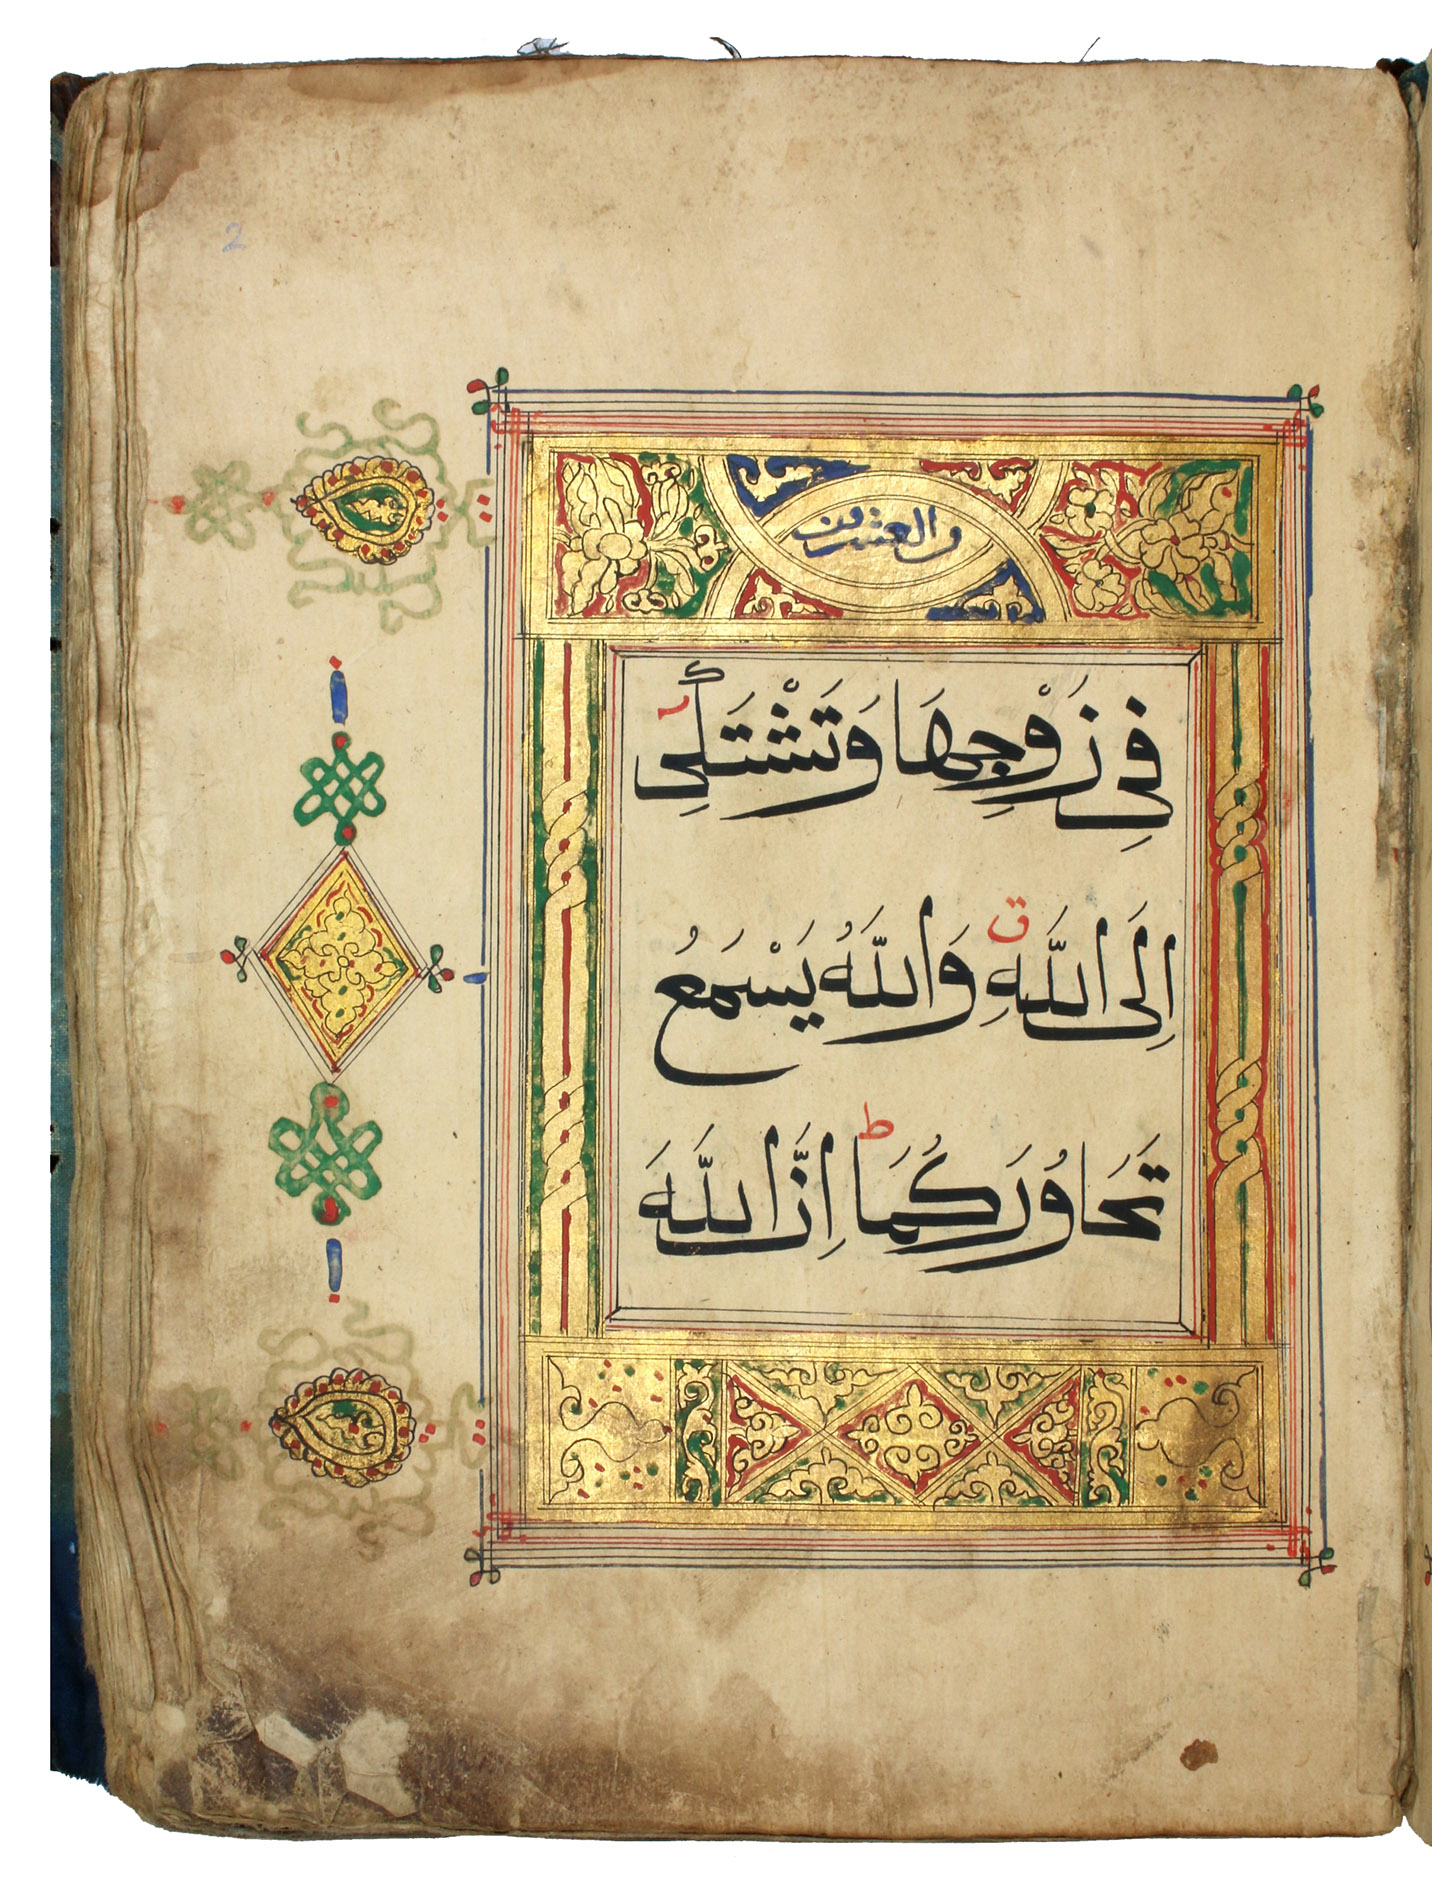 2
والعشرون
فِى زَوْجِهَا وَتَشْتَكِى
اِلَى اللَّهِ ق وَاللَّهُ يَسْمَعُ
تَحَاوُرَكُمَا ط اِنَّ اللَّهَ